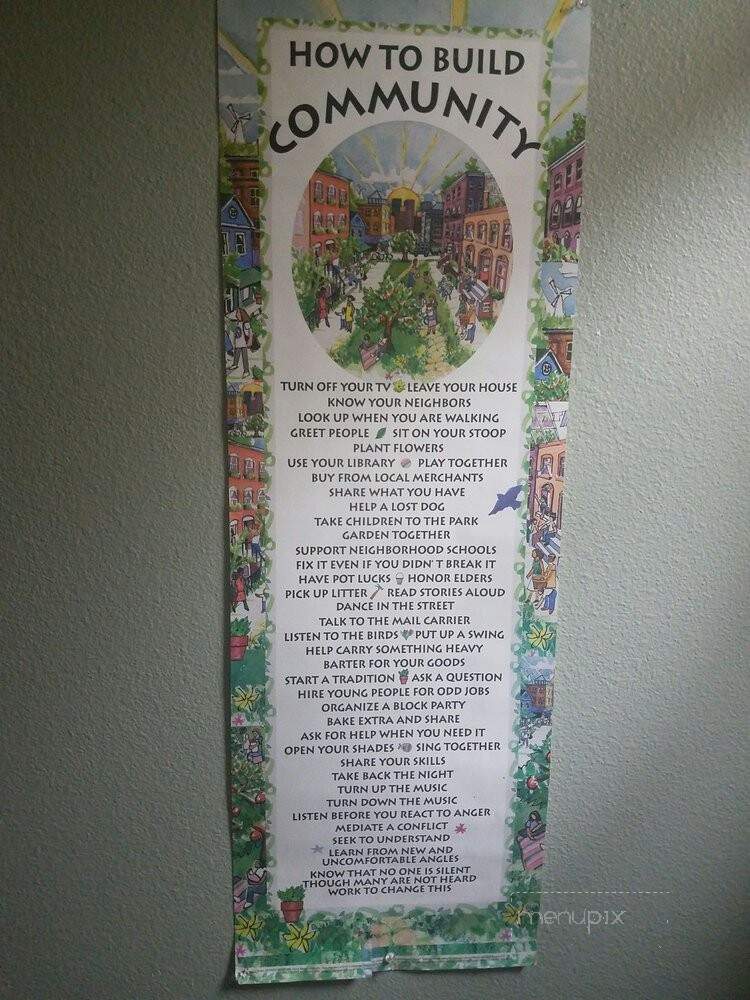 HOW TO BUILD
COMMUNITY
TURN OFF YOUR TV LEAVE YOUR HOUSE
KNOW YOUR NEIGHBORS
LOOK UP WHEN YOU ARE WALKING
GREET PEOPLE SIT ON YOUR STOOP
PLANT FLOWERS
USE YOUR LIBRARY PLAY TOGETHER
BUY FROM LOCAL MERCHANTS
SHARE WHAT YOU HAVE
HELP A LOST DOG
TAKE CHILDREN TO THE PARK
GARDEN TOGETHER
SUPPORT NEIGHBORHOOD SCHOOLS
FIX IT EVEN IF YOU DIDN'T BREAK IT
HAVE POT LUCKS HONOR ELDERS
PICK UP LITTER READ STORIES ALOUD
DANCE IN THE STREET
TALK TO THE MAIL CARRIER
LISTEN TO THE BIRDS PUT UP A SWING
HELP CARRY SOMETHING HEAVY
BARTER FOR YOUR GOODS
START A TRADITION ASK A QUESTION
HIRE YOUNG PEOPLE FOR ODD JOBS
ORGANIZE A BLOCK PARTY
BAKE EXTRA AND SHARE
ASK FOR HELP WHEN YOU NEED IT
OPEN YOUR SHADES SING TOGETHER
SHARE YOUR SKILLS
TAKE BACK THE NIGHT
TURN UP THE MUSIC
TURN DOWN THE MUSIC
LISTEN BEFORE YOU REACT TO ANGER
MEDIATE A CONFLICT
SEEK TO UNDERSTAND
LEARN FROM NEW AND
UNCOMFORTABLE ANGLES
KNOW THAT NO ONE IS SILENT
THOUGH MANY ARE NOT HEARD
WORK TO CHANGE THIS
menupix